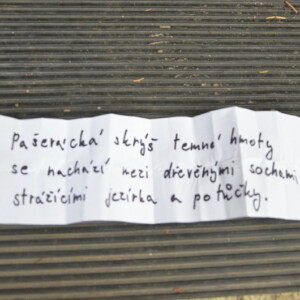 Pašerácká skrýš temné hmoty
se nachází mezi dřevěnými sochami
strážícími jezírka a potůčky.